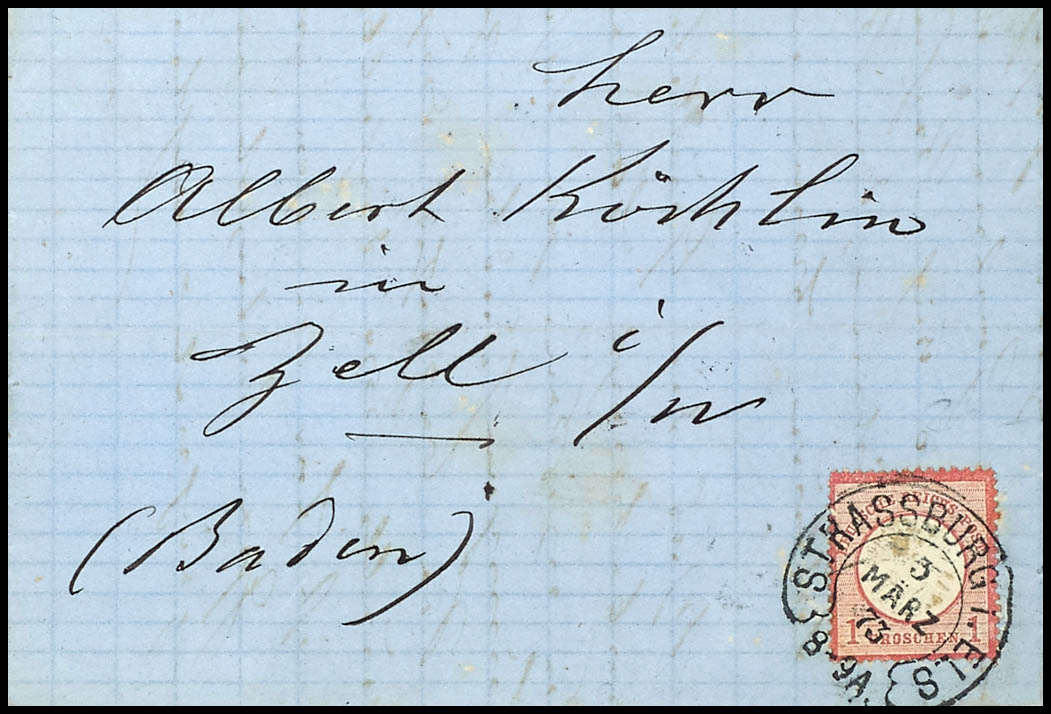 Herr
Albert Köchlin
in
Zell i/W
(Baden)
STRASSBURG i. ELS
3
MÄRZ
73
8-9A.
1 GROSCHEN 1